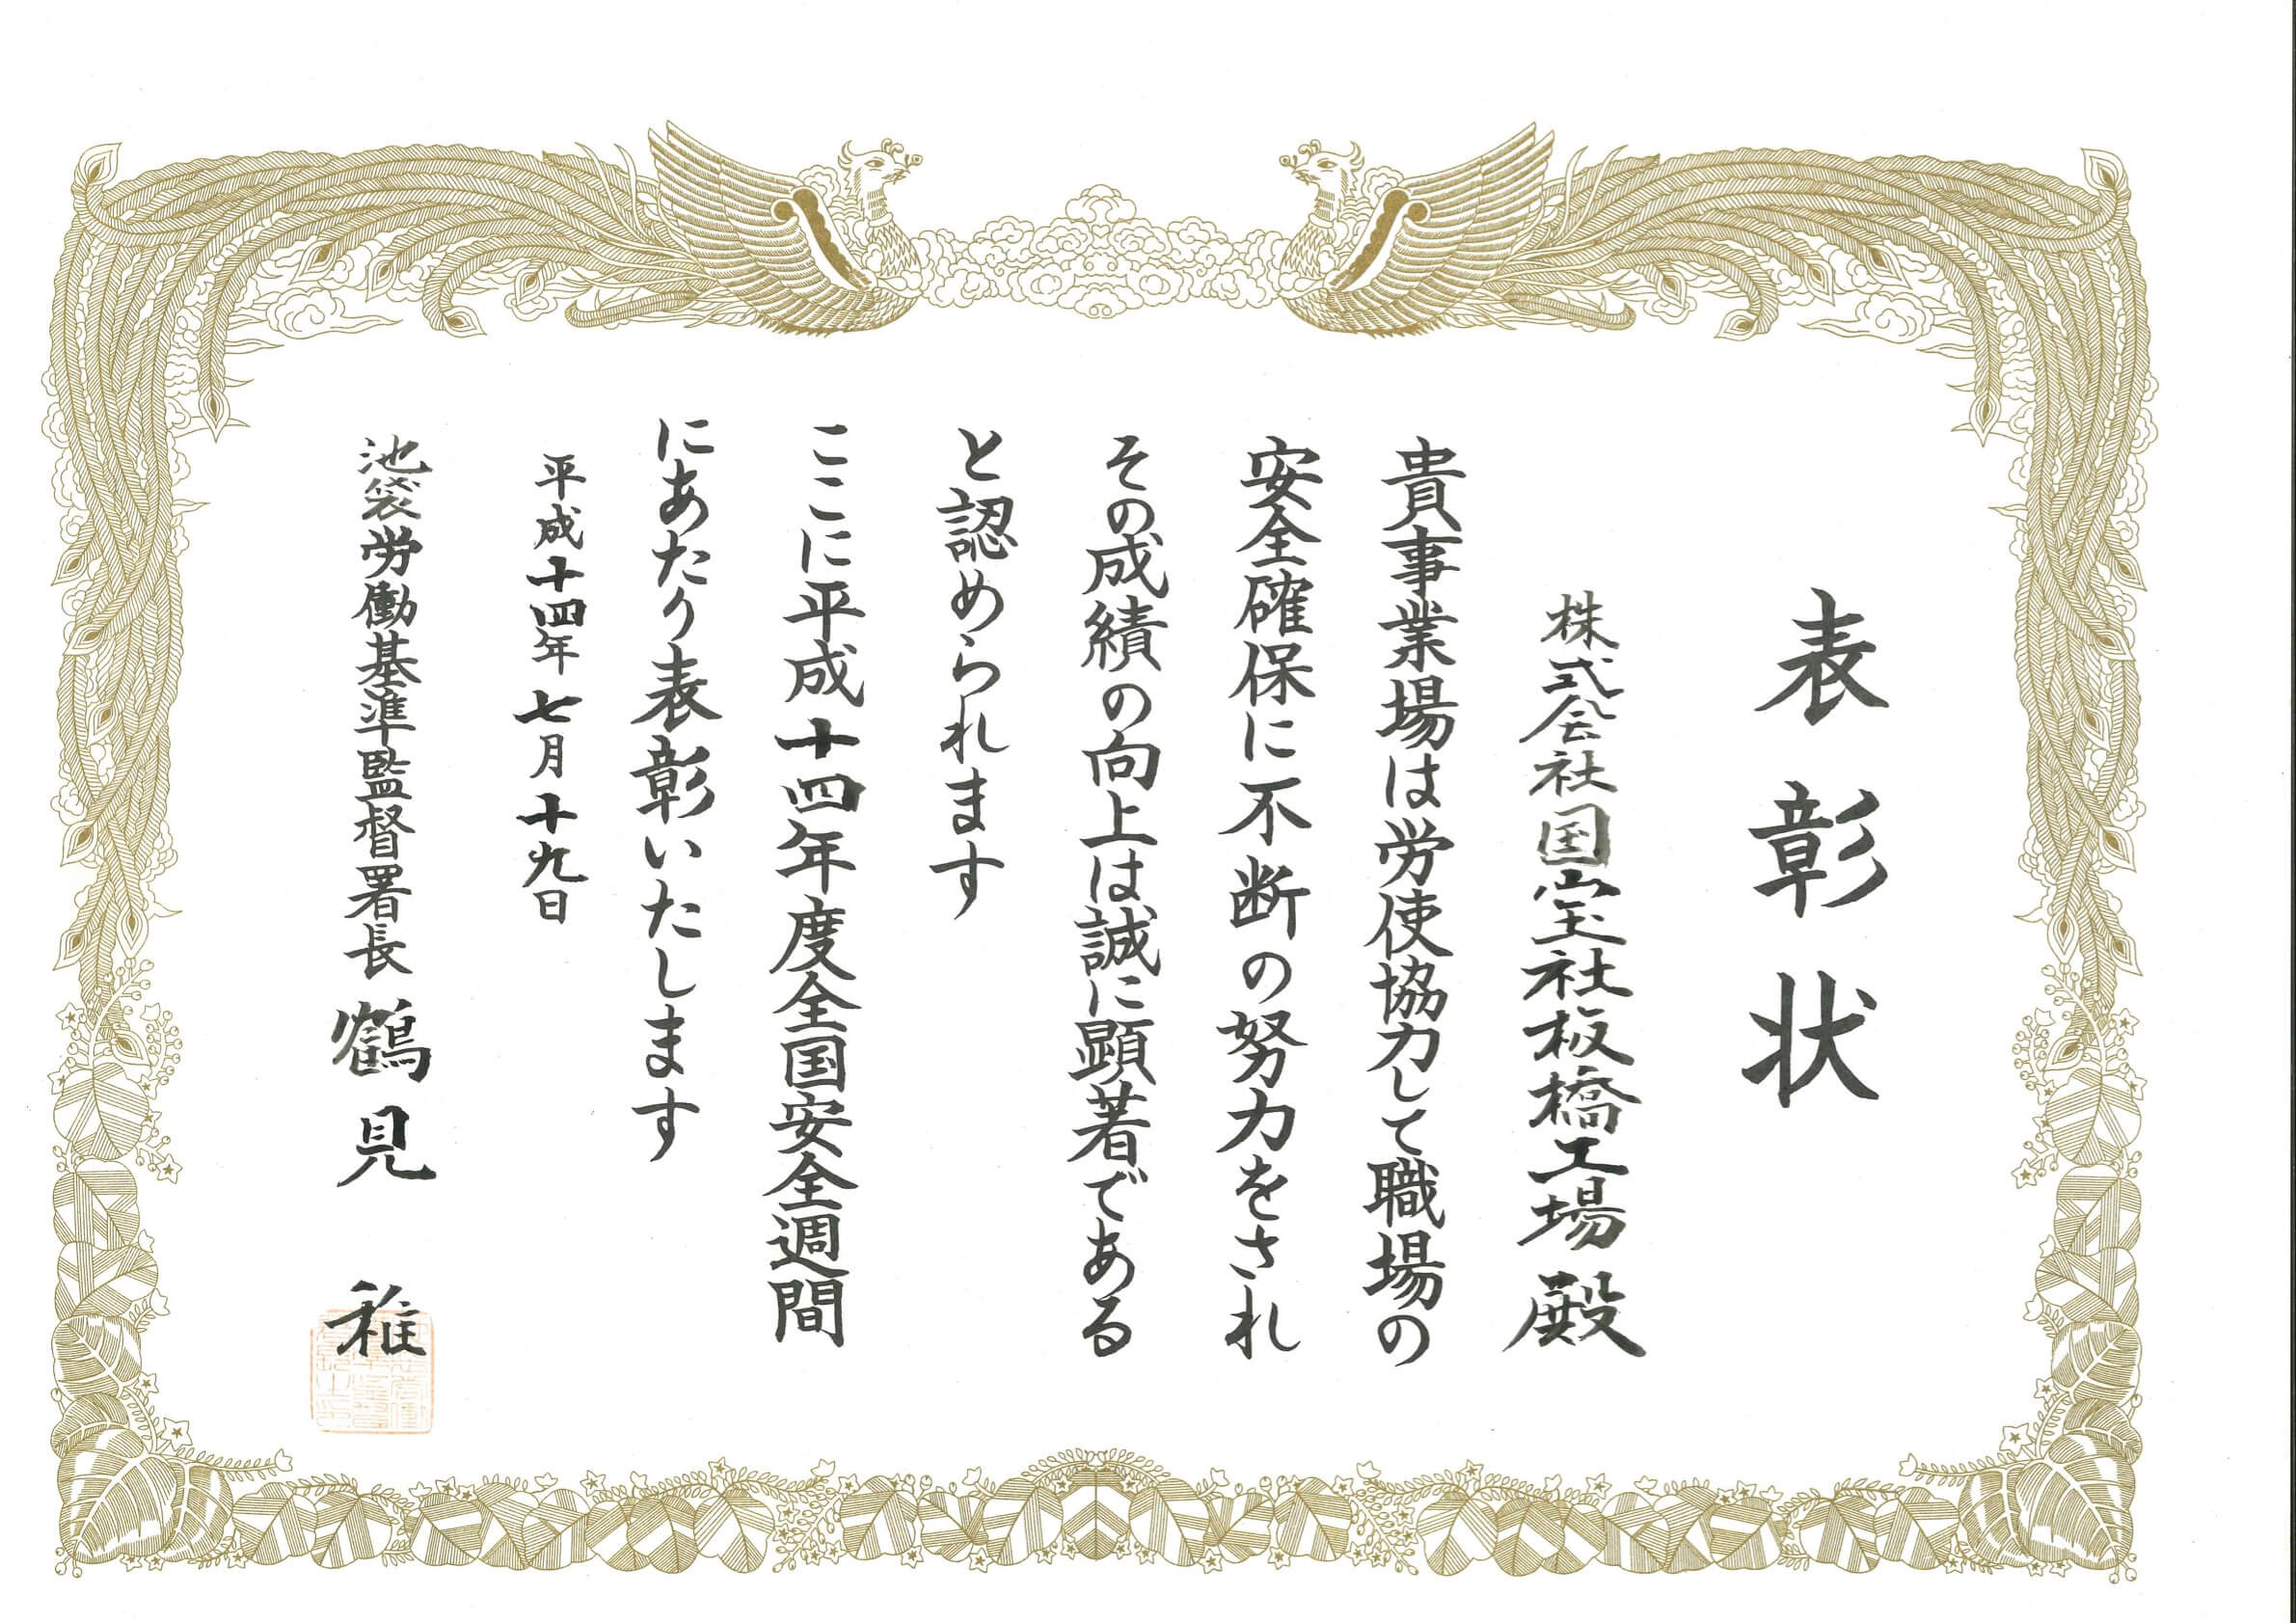 表彰状
株式会社国宝社板橋工場 殿
貴事業場は労使協力して職場の
安全確保に不断の努力をされ
その成績の向上は誠に顕著である
と認められます
ここに平成十四年度全国安全週間
にあたり表彰いたします
平成十四年七月十九日
池袋労働基準監督署長 鶴見 稚